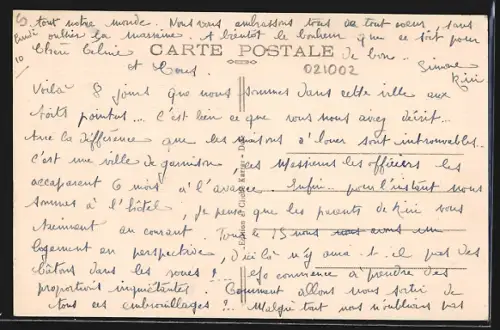 tout notre monde. Nous vous embrassons tous de tout cœur, sans
oublier la marraine. A bientôt le bonheur que ce soit pour
Lundi 10
Chère Céline
de bon
CARTE POSTALE
et Tous.
021002
Simone
Kiri
Voilà 8 jours que nous sommes dans cette ville aux
toits pointus... C'est bien ce que vous nous aviez décrit...
Avec la différence que les maisons à louer sont introuvables..
C'est une ville de garnison, ces Messieurs les officiers les
accaparent 6 mois à l'avance. Enfin.. pour l'instant nous
sommes à l'hôtel, je pense que les parents de Kiri vous
tiennent au courant. Tous le 15 nous avons un
logement en perspective, d'ici là n'y aura-t-il pas des
bâtons dans les roues! Ça commence à prendre des
proportions inquiétantes. Comment allons nous sortir de
tous ces embrouillages!.. Malgré tout nous n'oublions pas
Edition